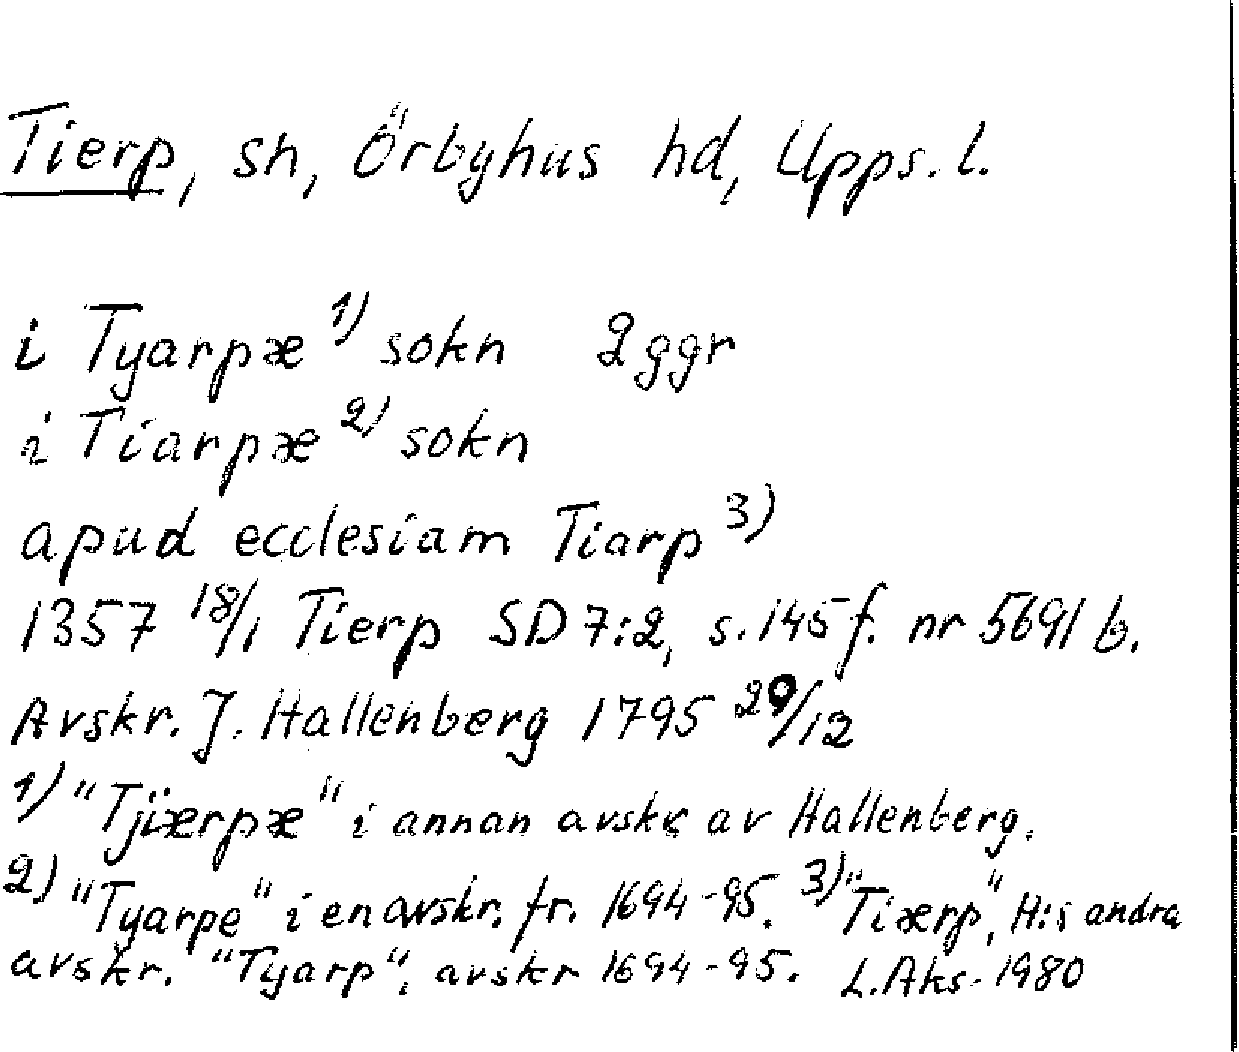 Tierp, sn, Örbyhus hd, Upps. l.
i Tyarpæ 1) sokn 2 ggr
i Tiarpæ 2) sokn
apud ecclesiam Tiarp 3)
1357 18/1 Tierp SD 7:2, s. 145 f. nr 5691 b.
Avskr. J. Hallenberg 1795 29/12
1) "Tjiærpæ" i annan avskr av Hallenberg.
2) "Tyarpe" i en avskr. fr. 1694-95. 3) "Tiærp", H:s andra
avskr. "Tyarp", avskr 1694-95. L. Aks. 1980